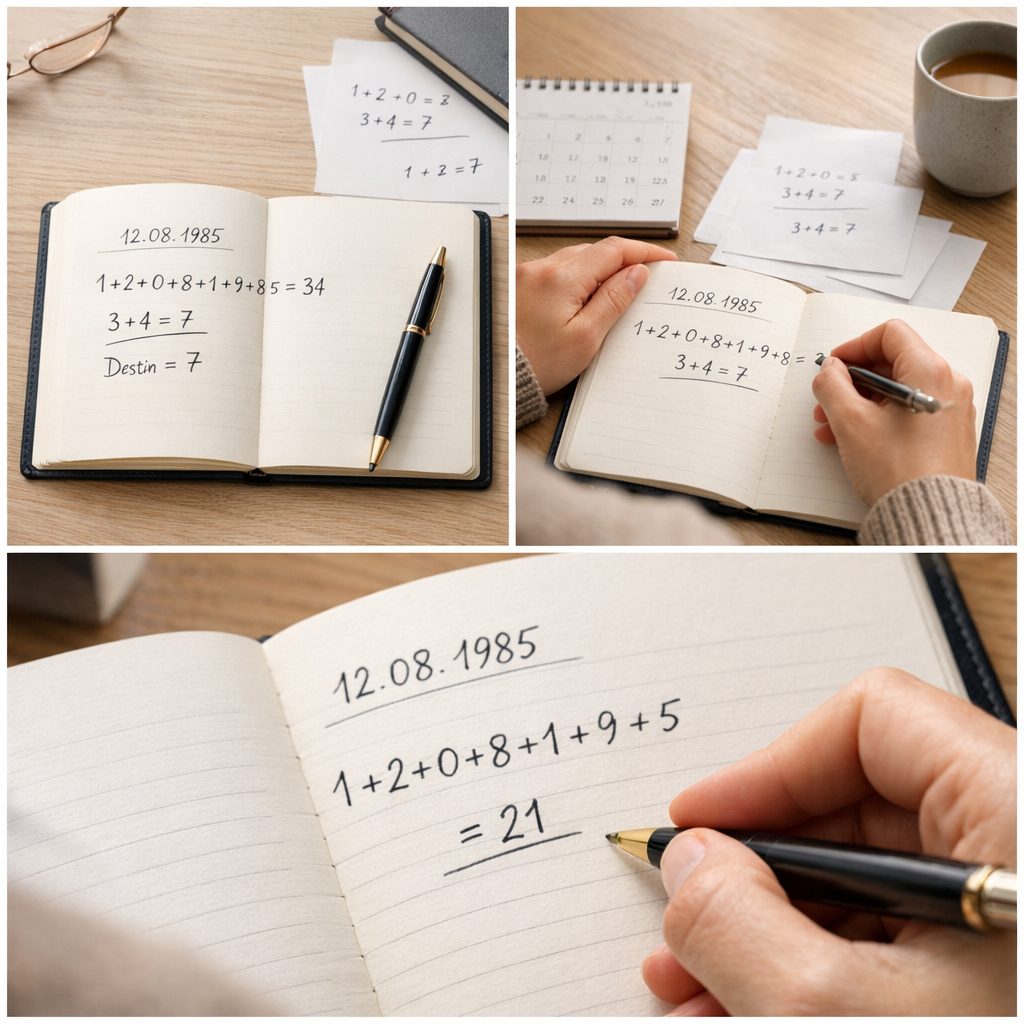 1+2+0=8
3+4=7
1+3=7
12.08.1985
1+2+0+8+1+9+85=34
3+4=7
Destin=7
1 2 6 6 7
18 16 15 16
18 16 15 19
23 24 25 26
1+2+0=8
3+4=7
3+4=7
12.08.1985
1+2+0+8+1+9+8=
3+4=7
12.08.1985
1+2+0+8+1+9+5
=21